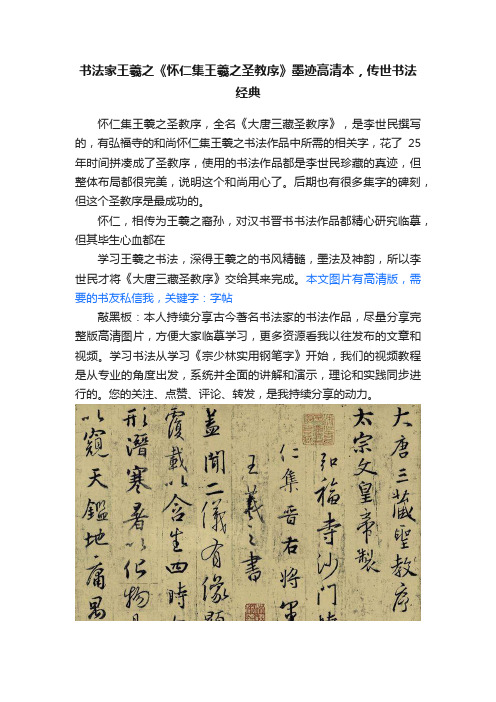 书法家王羲之《怀仁集王羲之圣教序》墨迹高清本，传世书法
经典
怀仁集王羲之圣教序，全名《大唐三藏圣教序》，是李世民撰写
的，有弘福寺的和尚怀仁集王羲之书法作品中所需的相关字，花了25
年时间拼凑成了圣教序，使用的书法作品都是李世民珍藏的真迹，但
整体布局都很完美，说明这个和尚用心了。后期也有很多集字的碑刻，
但这个圣教序是最成功的。
怀仁，相传为王羲之裔孙，对汉书晋书书法作品都精心研究临摹，
但其毕生心血都在
学习王羲之书法，深得王羲之的书风精髓，墨法及神韵，所以李
世民才将《大唐三藏圣教序》交给其来完成。本文图片有高清版，需
要的书友私信我，关键字：字帖
敲黑板：本人持续分享古今著名书法家的书法作品，尽量分享完
整版高清图片，方便大家临摹学习，更多资源看我以往发布的文章和
视频。学习书法从学习《宗少林实用钢笔字》开始，我们的视频教程
是从专业的角度出发，系统并全面的讲解和演示，理论和实践同步进
行的。您的关注、点赞、评论、转发，是我持续分享的动力。
大唐三藏聖教序
太宗文皇帝製
弘福寺沙門
仁集晉右將軍
王羲之書
蓋聞二儀有像顯
覆載以含生四時
形潛寒暑以化物
以窺天鑑地庸愚